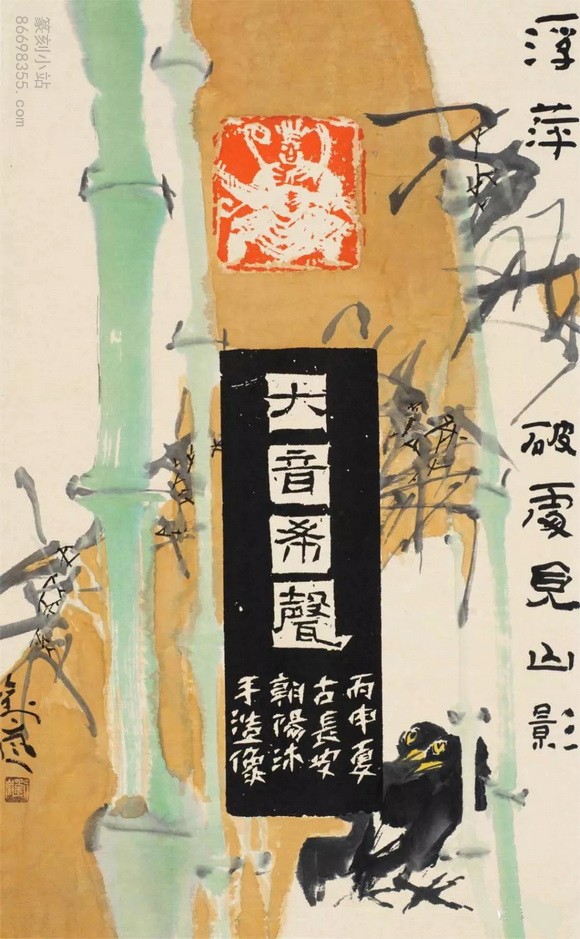 浮萍破處見山影
大音希聲
丙申夏
古長安
朝陽沐
手造像
篆刻小站
86698355.com